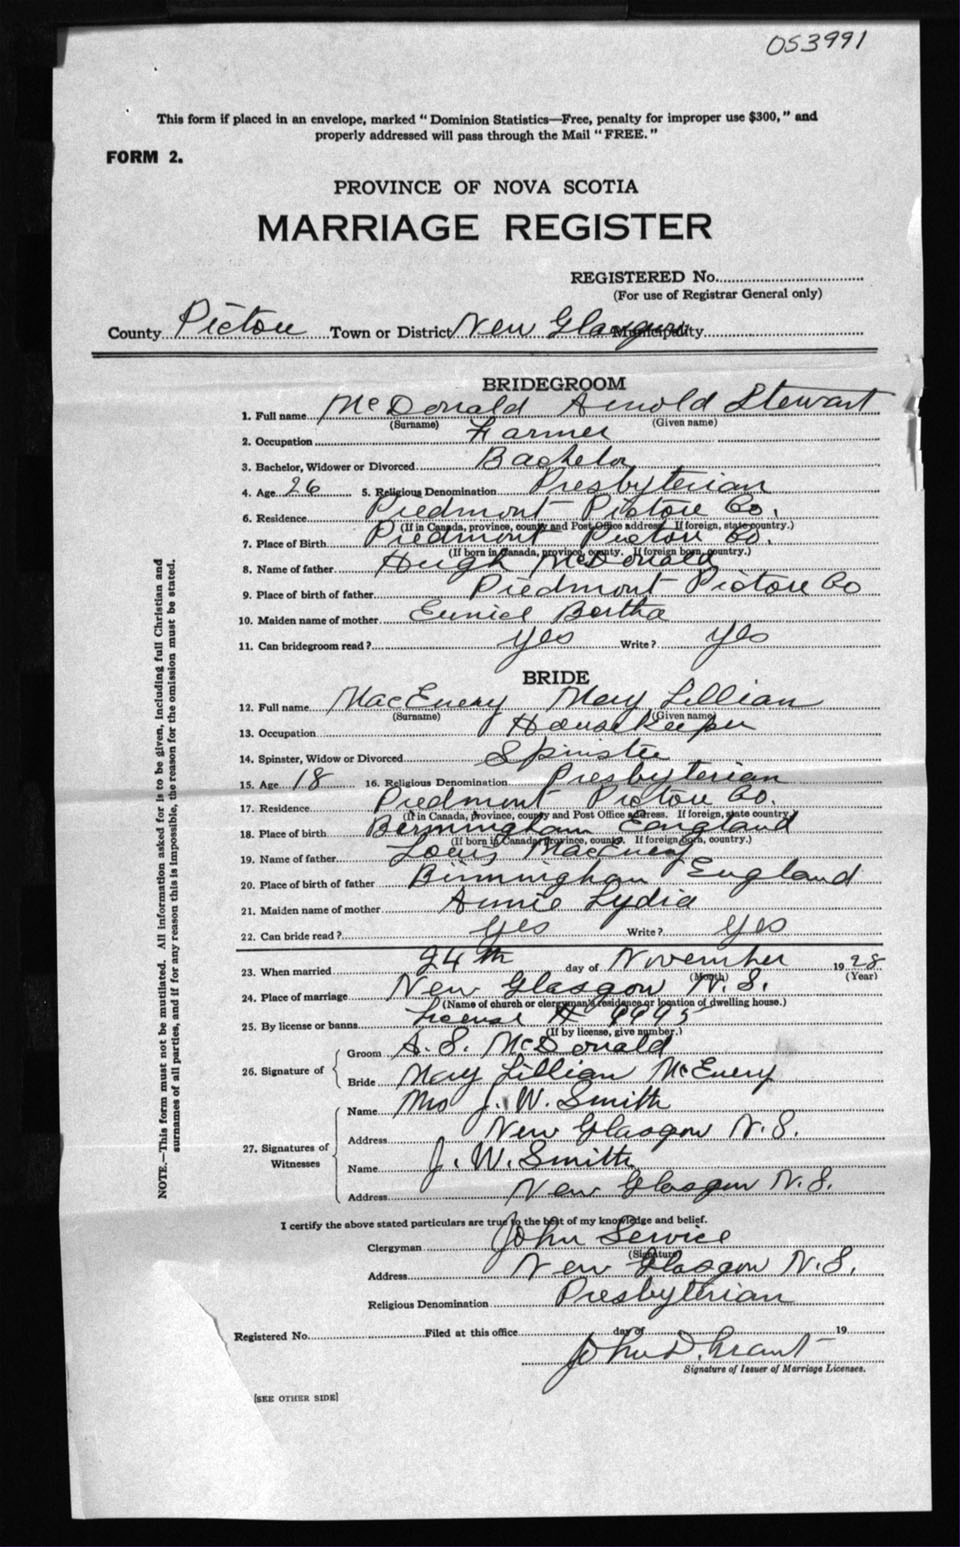 053991
This form if placed in an envelope, marked "Dominion Statistics—Free, penalty for improper use $300," and
properly addressed will pass through the Mail "FREE."
FORM 2.
PROVINCE OF NOVA SCOTIA
MARRIAGE REGISTER
REGISTERED No.
(For use of Registrar General only)
County Pictou Town or District New Glasgow Municipality
BRIDEGROOM
1. Full name McDonald Arnold Stewart
(Surname) (Given name)
2. Occupation Farmer
3. Bachelor, Widower or Divorced Bachelor
4. Age 26 5. Religious Denomination Presbyterian
6. Residence Piedmont Pictou Co.
(If in Canada, province, county and Post Office address. If foreign, state country.)
7. Place of Birth Piedmont Pictou Co.
(If born in Canada, province, county. If foreign born, country.)
8. Name of father Hugh McDonald
9. Place of birth of father Piedmont Pictou Co
10. Maiden name of mother Eunice Bertha
11. Can bridegroom read? yes Write? yes
BRIDE
12. Full name MacEnery Mary Lillian
(Surname) (Given name)
13. Occupation Housekeeper
14. Spinster, Widow or Divorced Spinster
15. Age 18 16. Religious Denomination Presbyterian
17. Residence Piedmont Pictou Co.
(If in Canada, province, county and Post Office address. If foreign, state country.)
18. Place of birth Bermingham England
(If born in Canada, province, county. If foreign born, country.)
19. Name of father Louis MacEnery
20. Place of birth of father Birmingham England
21. Maiden name of mother Annie Lydia
22. Can bride read? yes Write? yes
23. When married 24th day of November 1928
(Month) (Year)
24. Place of marriage New Glasgow N.S.
(Name of church or clergyman's residence or location of dwelling house.)
25. By license or banns License # 9995
(If by license, give number.)
26. Signature of
Groom A. S. McDonald
Bride Mary Lillian McEnery
27. Signatures of Witnesses
Name Mrs J. W. Smith
Address New Glasgow N.S.
Name J. W. Smith
Address New Glasgow N.S.
I certify the above stated particulars are true to the best of my knowledge and belief.
Clergyman John Service
(Signature)
Address New Glasgow N.S.
Religious Denomination Presbyterian
Registered No. Filed at this office day of 19
John D. Grant
Signature of Issuer of Marriage Licenses.
[SEE OTHER SIDE]
NOTE.—This form must not be mutilated. All information asked for is to be given, including full Christian and
surnames of all parties, and if for any reason this is impossible, the reason for the omission must be stated.